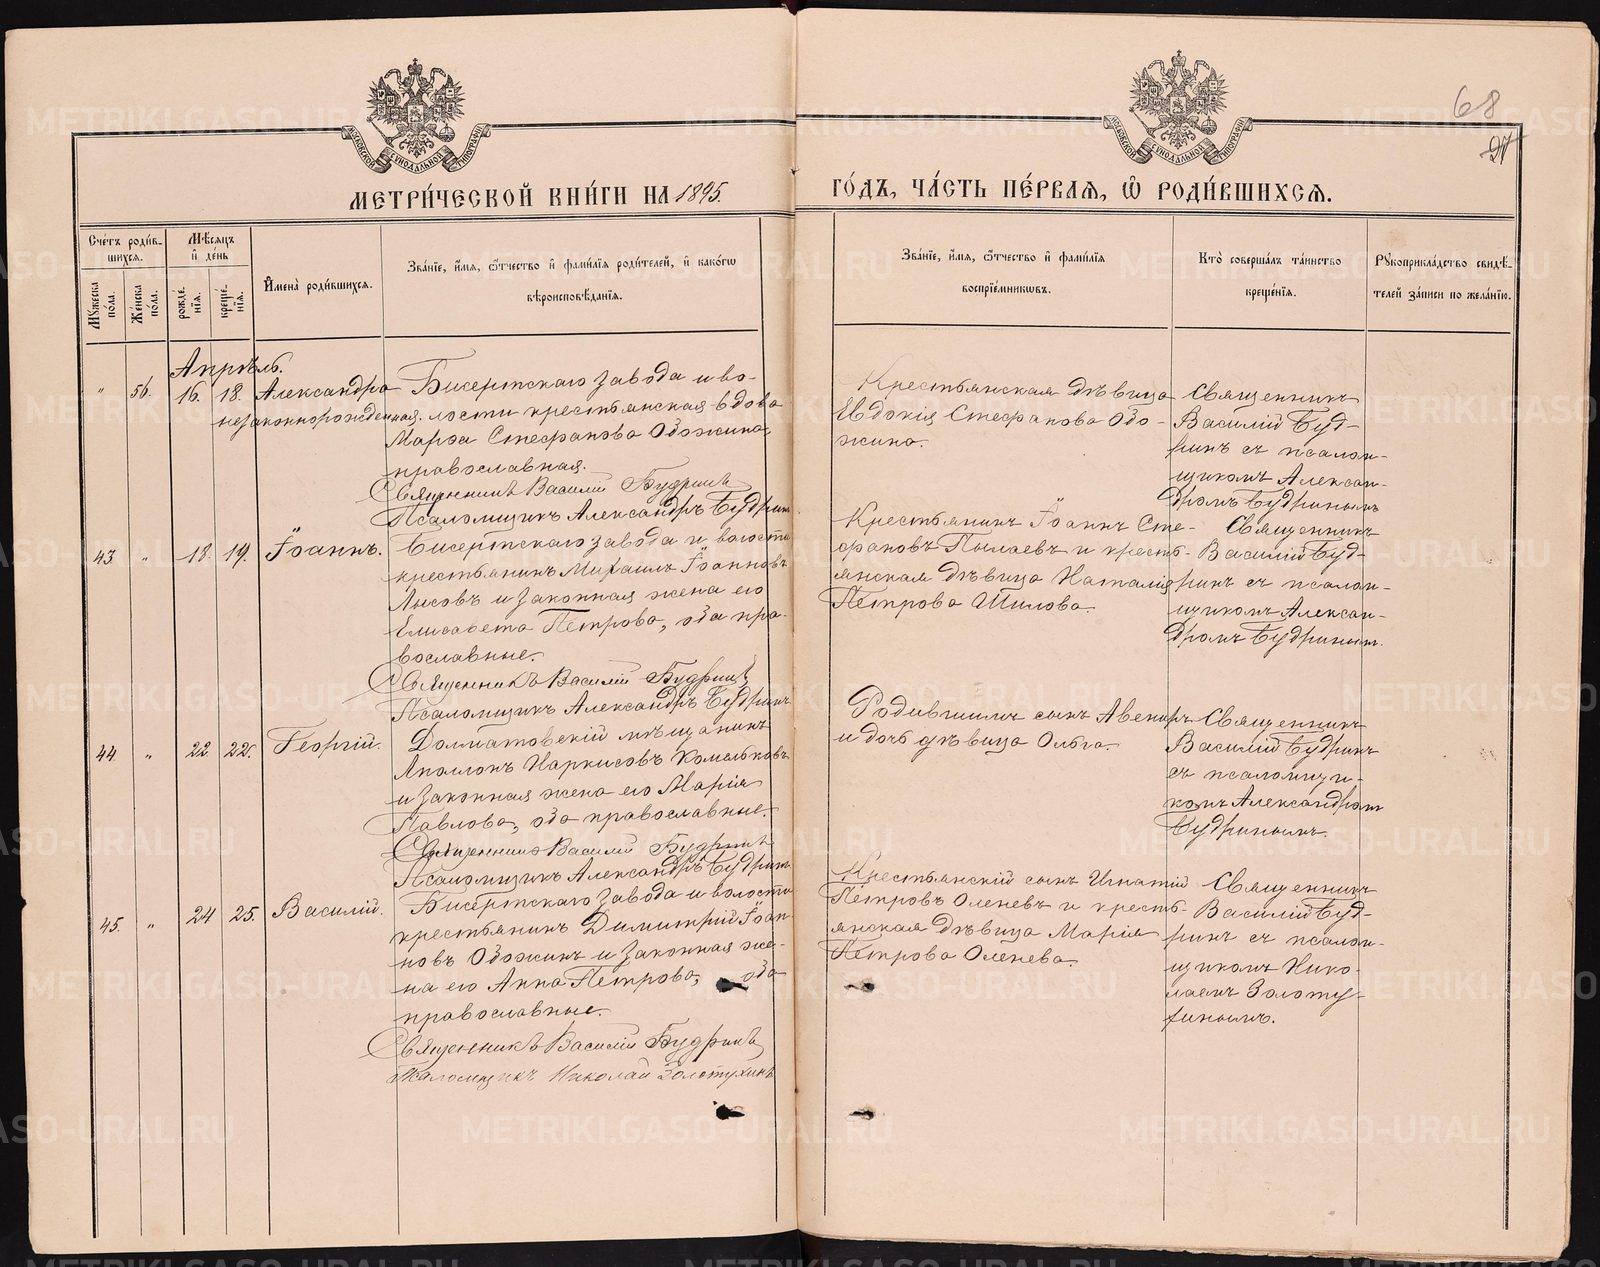 68
27
МОСКОВСКОЙ СУНОДАЛЬНОЙ ТИПОГРАФИИ
МОСКОВСКОЙ СУНОДАЛЬНОЙ ТИПОГРАФИИ
МЕТРИ́ЧЕСКОЙ КНИ́ГИ НА 1895. ГО́ДЪ, ЧА́СТЬ ПЕ́РВАЯ, Ѿ РОДИ́ВШИХСЯ.
Сче́тъ роди́в-
шихся.
Мѣ́сяцъ
и де́нь
Му́жеска
по́ла.
Же́нска
по́ла.
рожде́-
нїя.
креще́-
нїя.
Имена̀ роди́вшихся.
Зва́нїе, и́мя, ѻ҆́тчество и фами́лїя роди́телей, и како́гѡ
вѣроисповѣ́данїя.
Зва́нїе, и́мя, ѻ҆́тчество и фами́лїя
воспрїе́мникѡвъ.
Кто̀ соверша́лъ та́инство
креще́нїя.
Рукоприкла́дство свидѣ́-
телей за́писи по жела́нїю.
Апрѣль.
" 56. 16. 18. Александра
незаконнорожденная.
Бисертскаго завода и во-
лости крестьянская вдова
Марѳа Стефанова Одожина,
православная.
Священникъ Василій Будринъ
Псаломщикъ Александръ Будринъ
Крестьянская дѣвица
Евдокія Стефанова Одо-
жина.
Священникъ
Василій Буд-
ринъ съ псалом-
щикомъ Алексан-
дромъ Будринымъ
43 " 18. 19. Іоаннъ.
Бисертскаго завода и волости
крестьянинъ Михаилъ Іоанновъ
Лысовъ и законная жена его
Елисавета Петрова, оба пра-
вославные.
Священникъ Василій Будринъ
Псаломщикъ Александръ Будринъ
Крестьянинъ Іоаннъ Сте-
фановъ Пылаевъ и кресть-
янская дѣвица Наталія
Петрова Шилова.
Священникъ
Василій Буд-
ринъ съ псалом-
щикомъ Алексан-
дромъ Будринымъ.
44 " 22. 22. Георгій.
Долматовскій мѣщанинъ
Аполлонъ Наркисовъ Комельковъ
и законная жена его Марія
Павлова, оба православные.
Священникъ Василій Будринъ
Псаломщикъ Александръ Будринъ
Родившимъ сынъ Авениръ
и дочь дѣвица Ольга.
Священникъ
Василій Будринъ
съ псаломщи-
комъ Александромъ
Будринымъ.
45. " 24 25. Василій.
Бисертскаго завода и волости
крестьянинъ Димитрій Іоан-
новъ Одожинъ и законная же-
на его Анна Петрова, оба
православные.
Священникъ Василій Будринъ
Псаломщикъ Николай Золотухинъ
Крестьянскій сынъ Игнатій
Петровъ Оленевъ и кресть-
янская дѣвица Марія
Петрова Оленева.
Священникъ
Василій Буд-
ринъ съ псалом-
щикомъ Нико-
лаемъ Золоту-
хинымъ.
METRIKI.GASO-URAL.RU